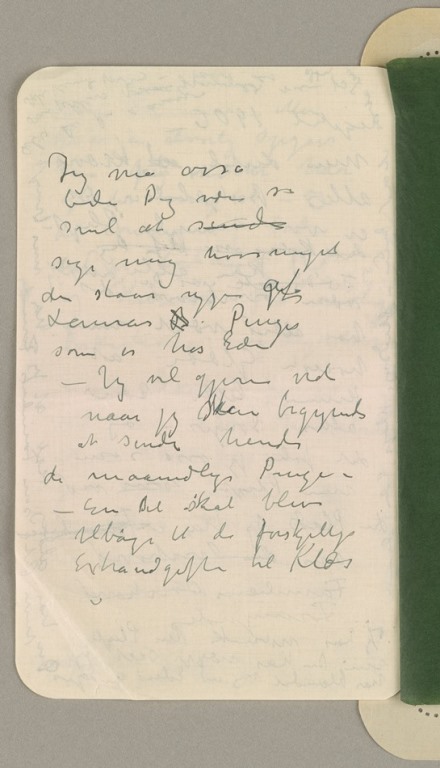 Jeg må også
bede Dig være så
snil at sende
sige mig hvormeget
der staar igjen
Lauras Penge
som er hos Eder
– Jeg vil gjerne vid
naar jeg skal begynde
at sende hende
de maanedlige Penge –
– Em Del skal blive
tilbage til de forskjellige
Extraudgifter til Klæs